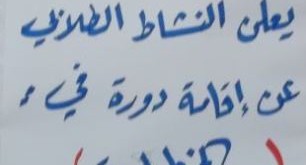 يعلن النشاط الطلابي
عن إقامة دورة في :